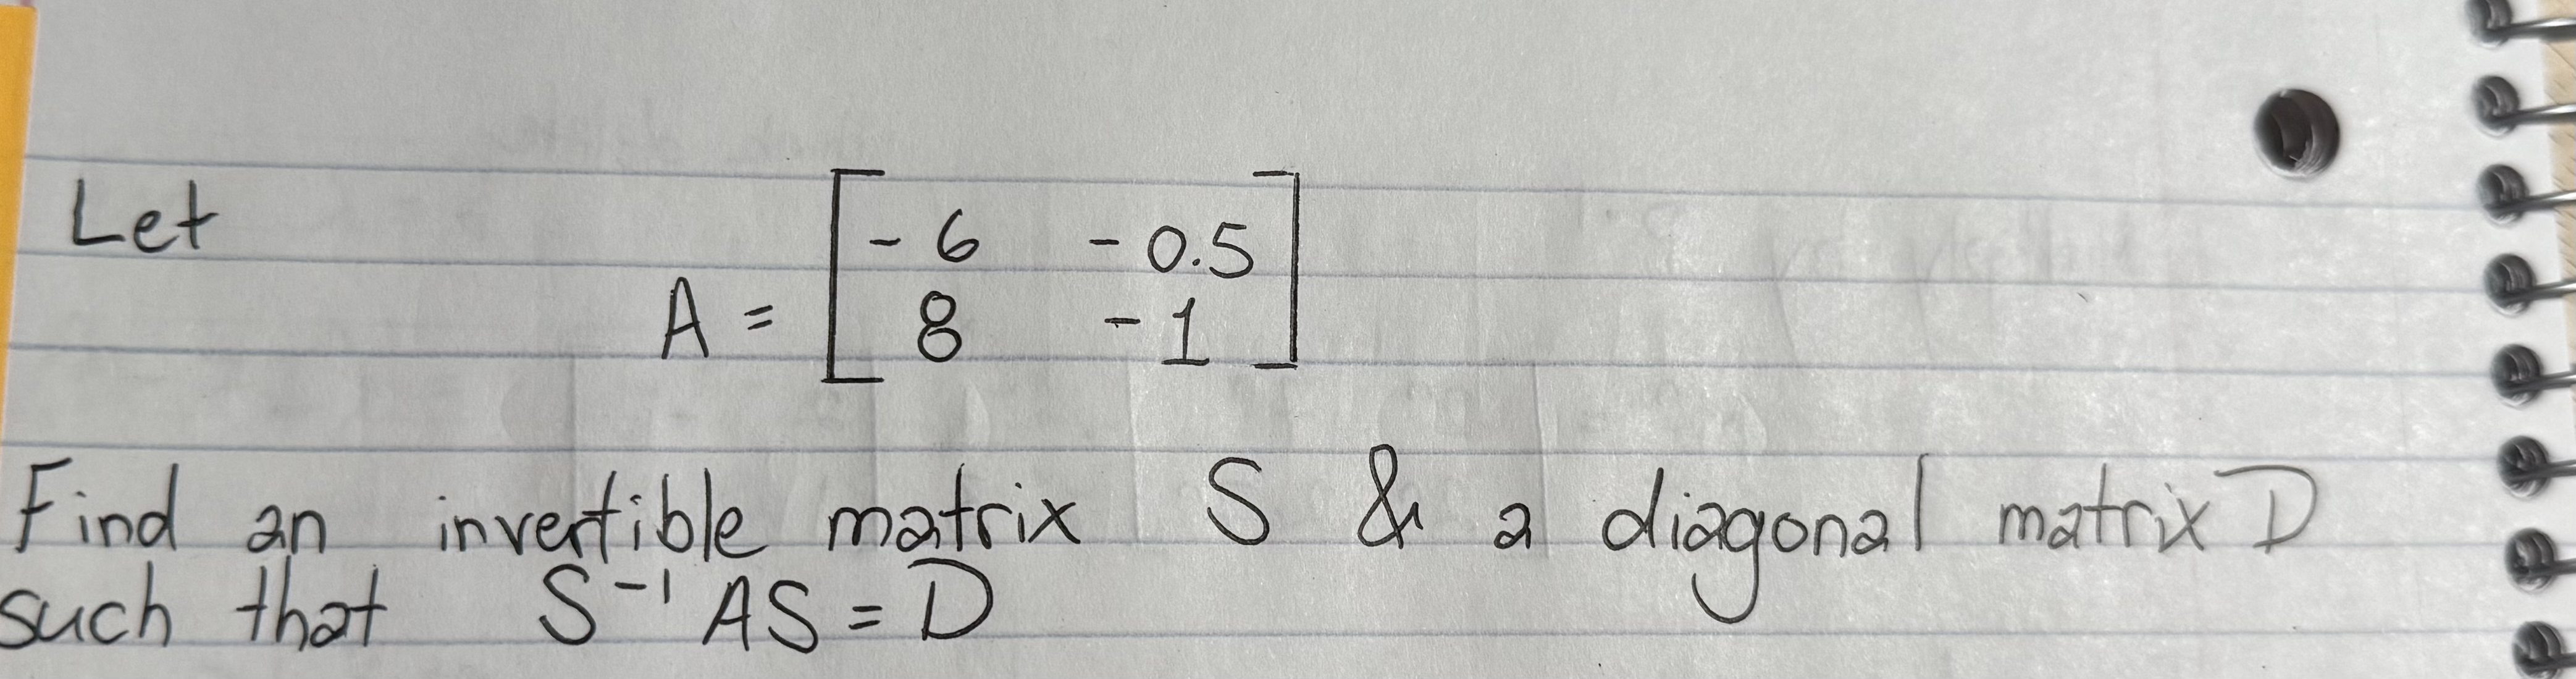 Let
A = [ -6 -0.5
8 -1 ]
Find an invertible matrix S & a diagonal matrix D
such that S⁻¹ AS = D